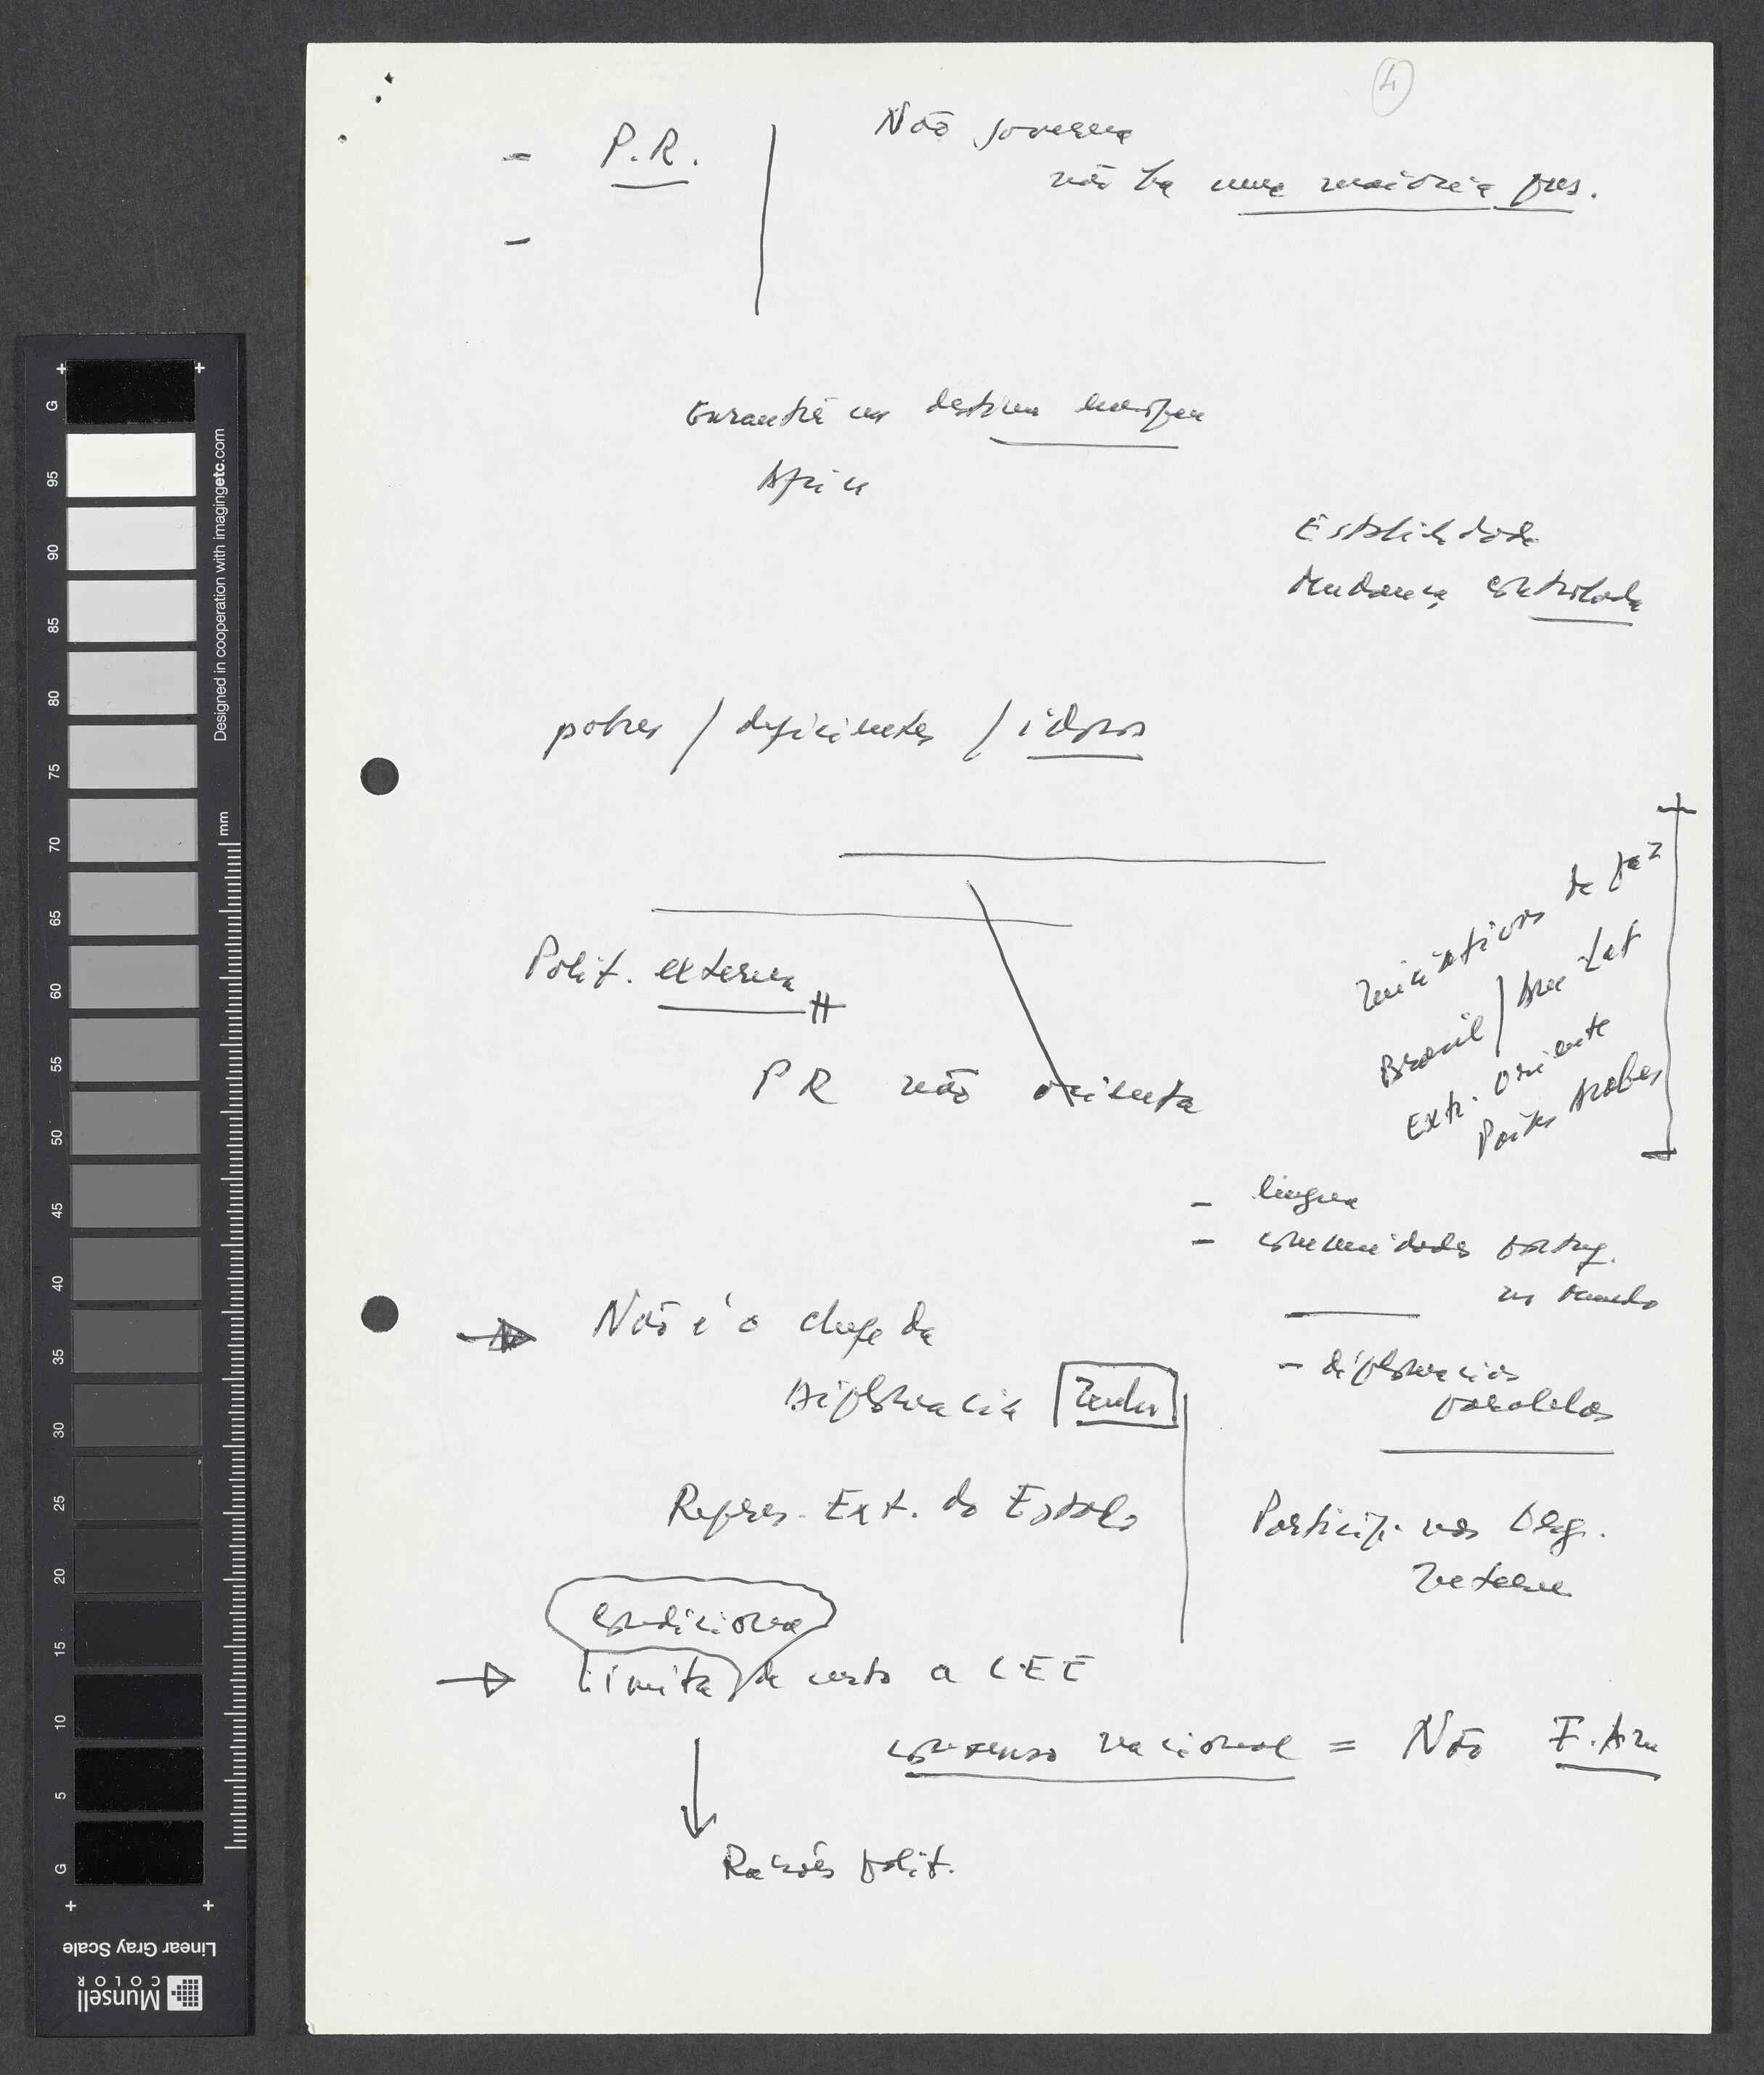 4
- P.R.
Não governa
não há uma maioria pres.
-
Garantia um destino europeu
Africa
Estabilidade
Mudança controlada
pobres / deficientes / idosos
Iniciativas de paz
Brasil / Am Lat
Extr. Oriente
Países Arabes
Polit. externa
PR não orienta
- lingua
- comunidades portug.
no mundo
→ Não é o chefe da
Diplomacia
- diplomacias
paralelas
Repres. Ext. do Estado
Particip. nas Org.
Intern
condiciona
→ limita de certo a CEE
consenso nacional = Não
Razões polit.
G
95
90
85
80
75
70
65
60
55
50
45
40
35
30
25
20
15
10
5
G
mm
Designed in cooperation with imagingetc.com
Linear Gray Scale
Munsell
COLOR